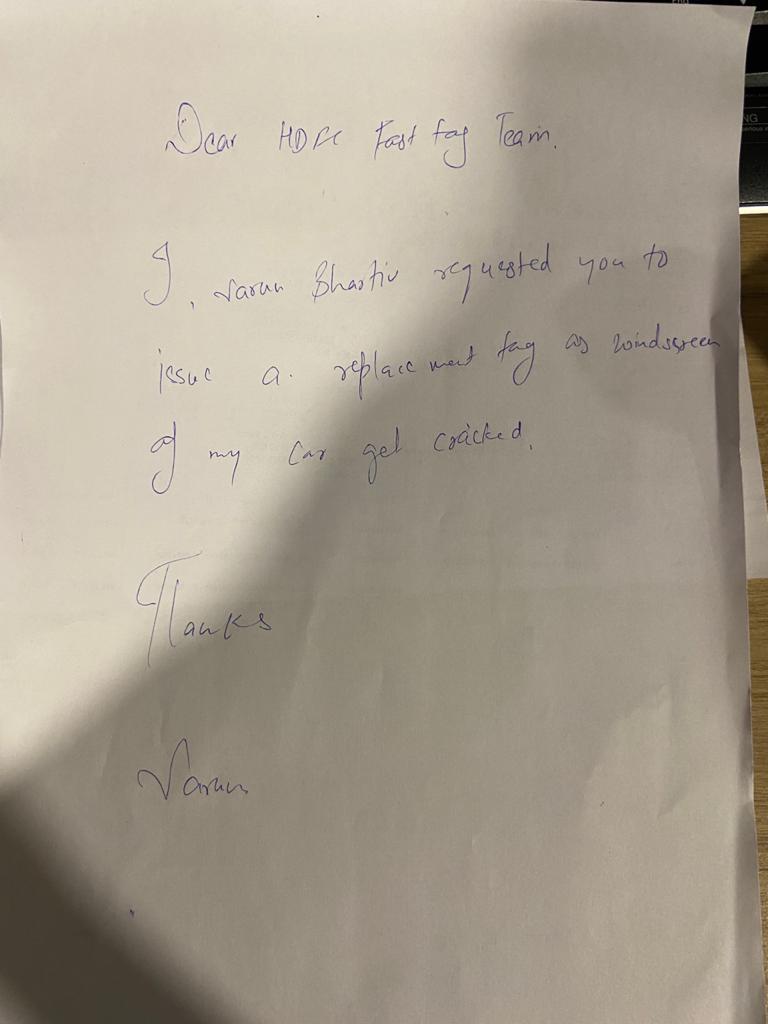 Dear HDFC Fast tag Team.
I, Varun Bhartiv requested you to
issue a replacement tag as windscreen
of my car get cracked.
Thanks
Varun